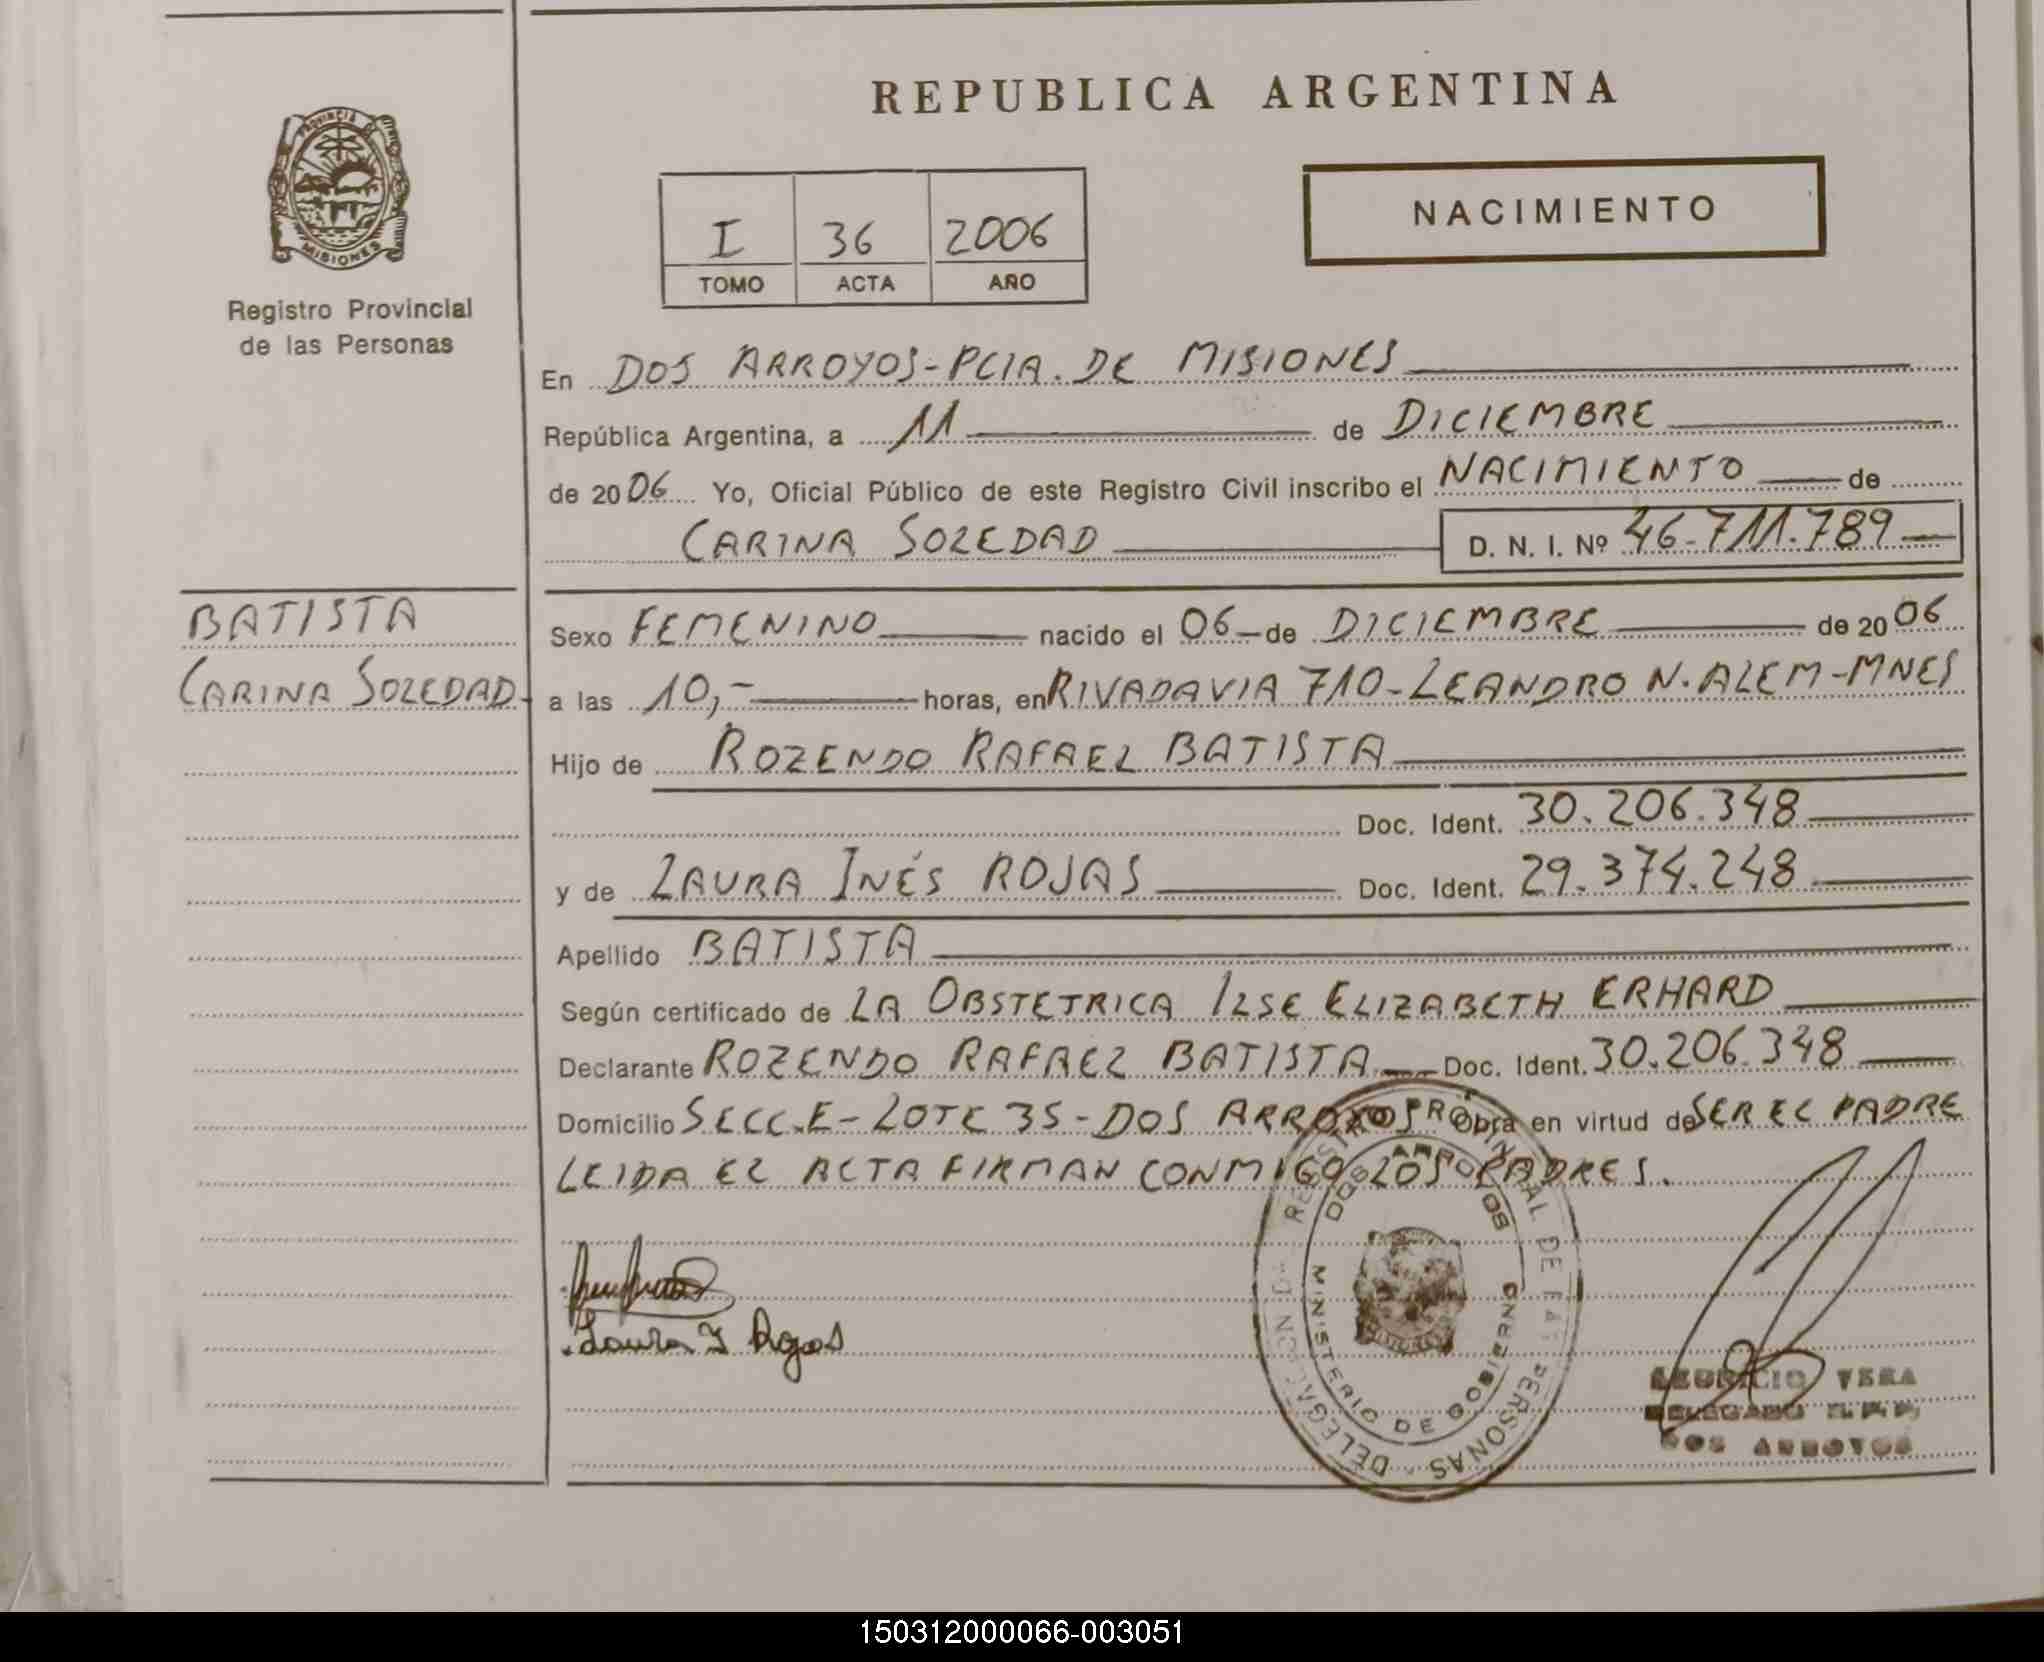 REPUBLICA ARGENTINA
PROVINCIA DE
MISIONES
Registro Provincial
de las Personas
I 36 2006
TOMO ACTA AÑO
NACIMIENTO
En DOS ARROYOS-PCIA. DE MISIONES
República Argentina, a 11 de DICIEMBRE
de 2006 Yo, Oficial Público de este Registro Civil inscribo el NACIMIENTO de
CARINA SOLEDAD D. N. I. Nº 46.711.789
BATISTA
CARINA SOLEDAD
Sexo FEMENINO nacido el 06 de DICIEMBRE de 2006
a las 10,- horas, en RIVADAVIA 710-LEANDRO N. ALEM-MNES
Hijo de ROZENDO RAFAEL BATISTA
Doc. Ident. 30.206.348
y de LAURA INÉS ROJAS Doc. Ident. 29.374.248
Apellido BATISTA
Según certificado de LA OBSTETRICA ILSE ELIZABETH ERHARD
Declarante ROZENDO RAFAEL BATISTA Doc. Ident. 30.206.348
Domicilio SECC.E-LOTE 35-DOS ARROYOS Obra en virtud de SER EL PADRE
LEIDA EL ACTA FIRMAN CONMIGO LOS PADRES.
Laura I Rojas
REGISTRO PROVINCIAL DE LAS PERSONAS - DELEGACION
DOS ARROYOS
MINISTERIO DE GOBIERNO
VERA
DELEGADO R. P. P.
DOS ARROYOS
150312000066-003051